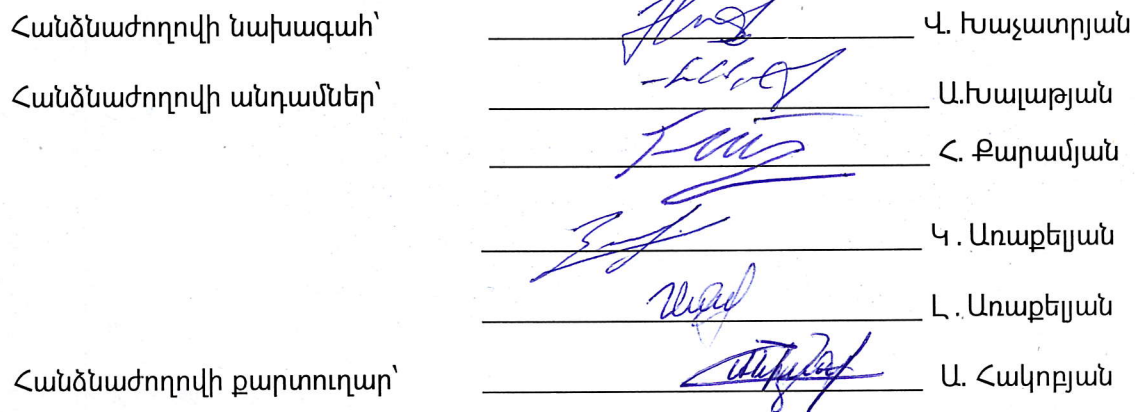 Հանձնաժողովի նախագահ՝ Վ. Խաչատրյան
Հանձնաժողովի անդամներ՝ Ա.Խալաթյան
Հ. Քարամյան
Կ . Առաքելյան
Լ . Առաքելյան
Հանձնաժողովի քարտուղար՝ Ա. Հակոբյան